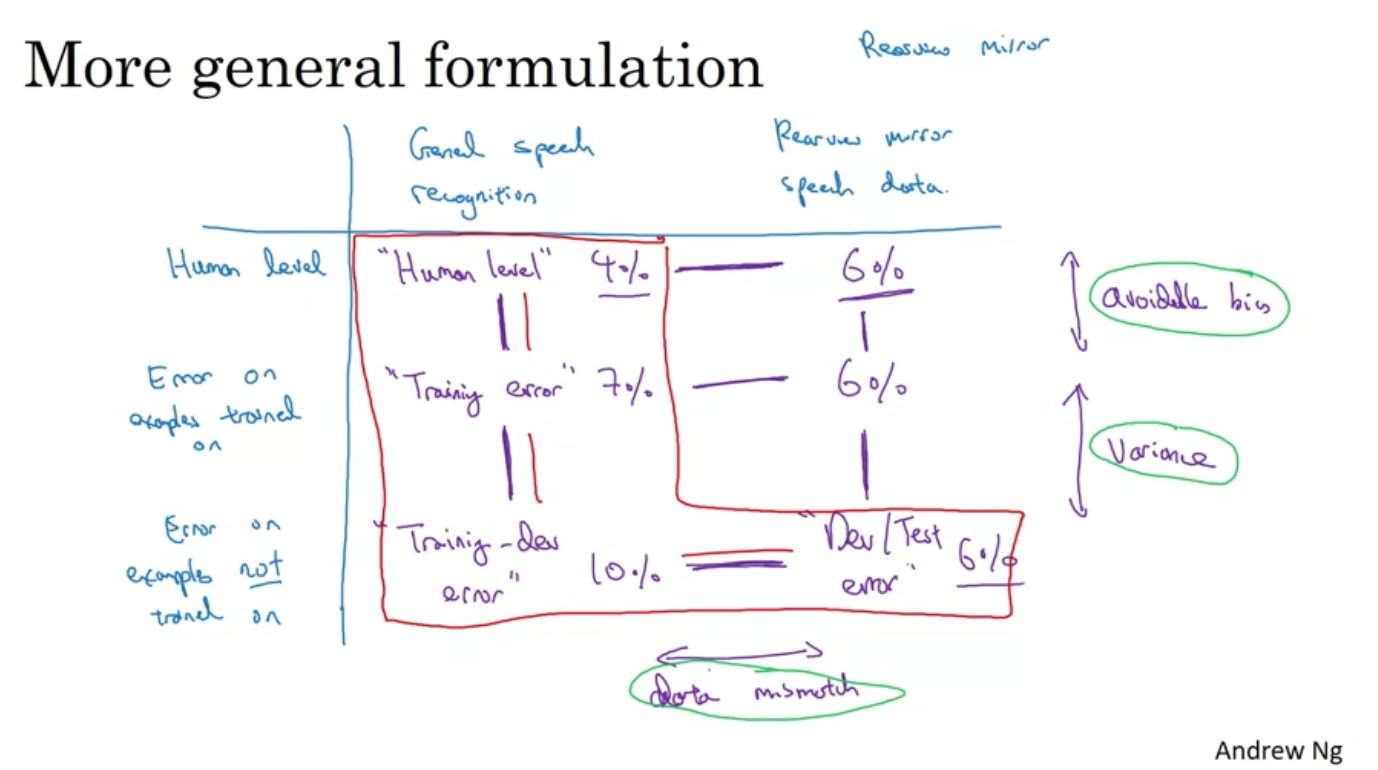 More general formulation
Rearview mirror
General speech
recognition
Rearview mirror
speech data.
Human level
"Human level" 4% 6%
avoidable bias
Error on
examples trained
on
"Training error" 7% 6%
Variance
Error on
examples not
trained on
"Training-dev
error" 10%
"Dev/Test
error" 6%
data mismatch
Andrew Ng